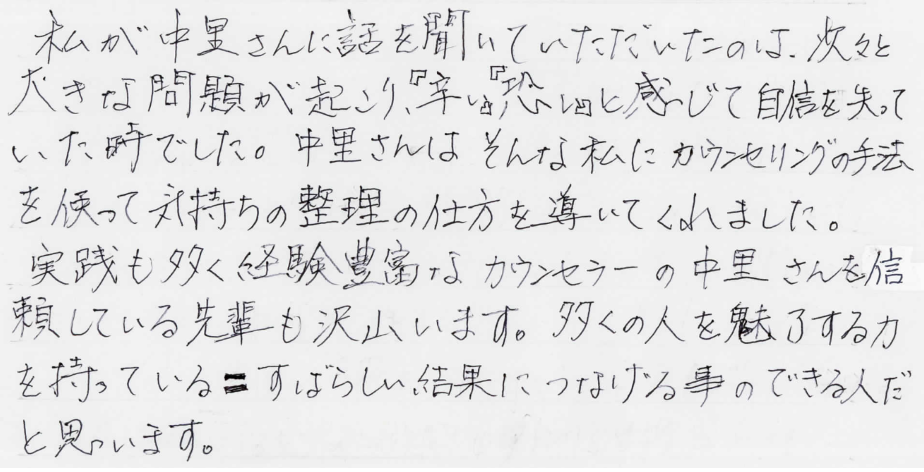 私が中里さんに話を聞いていただいたのは、次々と
大きな問題が起こり、『辛い』『恐い』と感じて自信を失って
いた時でした。中里さんはそんな私にカウンセリングの手法
を使って気持ちの整理の仕方を導いてくれました。
実践も多く経験豊富なカウンセラーの中里さんを信
頼している先輩も沢山います。多くの人を魅了する力
を持っている=すばらしい結果につなげる事のできる人だ
と思っています。